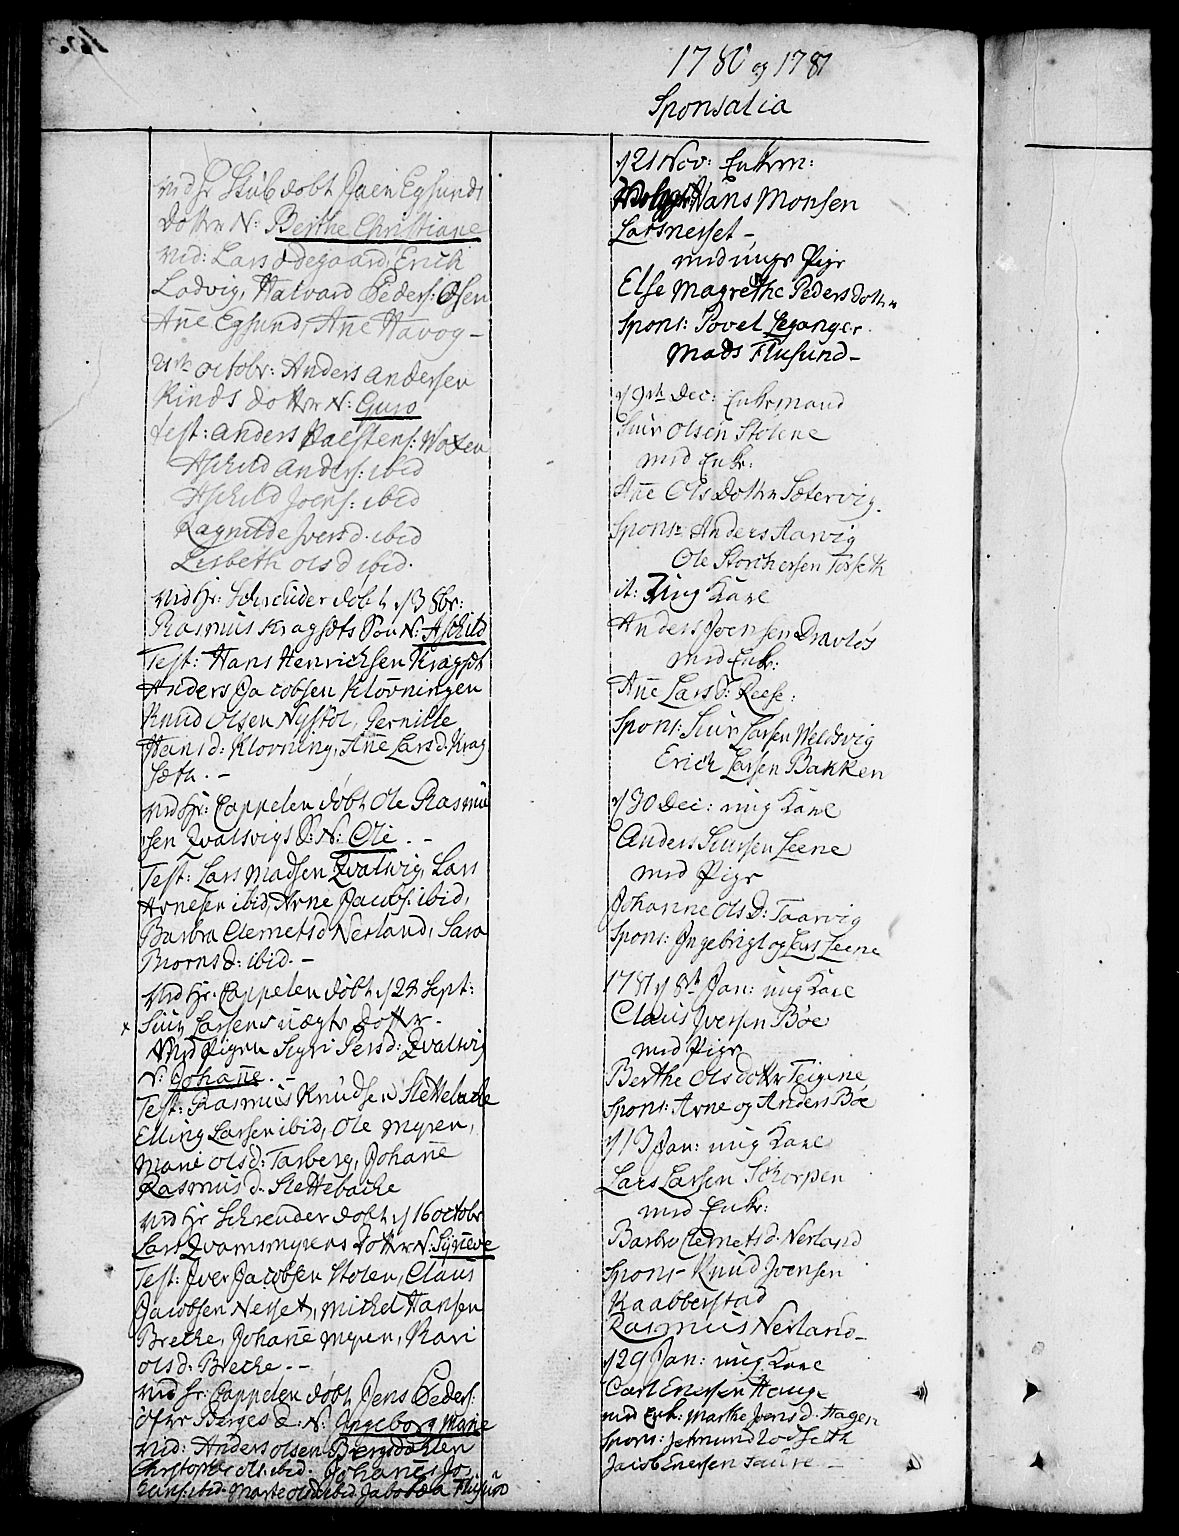 1780 og 1781
Sponsalia
ved Hr Stub döbt Joen Egsunds
Dotter N: Berthe Christiane
vid: Lars Ødegaard, Erich
Ladvig, Halvard Peders: Olsen
Añe Egsund, Añe Havog –
21de octobr: Anders Andersen
Rinds Dotter N: Guro
test: Anders Halstens: Woxen
Aschild Anders: ibid
Aschild Joens: ibid
Ragnilde Iversd. ibid
Lisbeth olsd ibid.
ved Hr: Schreuder döbt d 13 8br:
Rasmus Kragsets Søn N: Aschild
Test: Hans Henrichsen Kragset
Anders Jacobsen Klövningen
Knud Olsen Nystöl, Pernille
Hansd: Klovning, Añe Larsd: Krag
sæth. –
ved Hr: Cappelen döbt Ole Rasmu
sen Qvalsvigs S: N: Ole. –
Test: Lars Madsen Qvalsvig, Lars
Arnesen ibid, Arne Jacobs: ibid,
Barbra Clemetsd Nerland, Sara
Biornsd: ibid. –
ved Hr. Cappelen döbt d 24 Sept:
x Siur Larsens uægte Dotter.
Med Pigen Sigri Persd: Qvalsvig
N: Johañe. –
Test: Rasmus Knudsen Slettebache
Elling Larsen ibid, Ole Myren,
Marie olsd: Tarberg, Johañe
Rasmusd. Slettebache
ved Hr Schreuder döbt d 16 octobr
Lars Qvamsmyrens Dotter N: Syñeve
Test: Iver Jacobsen Stolen, Claus
Jacobsen Nesset, Michel Hansen
Breche, Johañe Myren, Kari
olsd: Breche. –
ved Hr: Cappelen döbt Jens Peders:
öfre Berges D: N: Ingeborg Marie
vid: Anders Olsen Bergsdahlen
Christopher ols: ibid. Johañes Jo
hans: ibid. Marte olsd ibid. Jabobæa Flusund
d 21 Nov: Enkem:
Hans Monsen
Larsnesset –
med unge Pige
Else Magrethe Pedersdotter
Spons: Povel Leganger
Mads Flusund –
d 9de Dec: Enkemand
Siur Olsen Stolene
med Enke:
Añe Olsdotter Sætervig.
Spons: Anders Aarvig
Ole Storchersen Torseth
it: Ung Karl
Anders Joensen Dravlös
med Enke:
Añe Larsd: Reese:
Spons: Siur Larsen Weldsvig
Erich Larsen Bakken
d 30 Dec: ung Karl
Anders Siursen Leene
med Pige
Johanne Ols D: Taarvig
Spons: Ingebrigt og Lars Leene
1781 d 8de Jan: ung Karl
Claus Iversen Böe
med Pige
Berthe Olsdotter Teigene
Spons: Arne og Anders Böe
d 13 Jan: ung Karl
Lars Larsen Schorpen
med Enke:
Barbro Clemetsd. Nerland
Spons – Knud Joensen
Kaabberstad
Rasmus Nerland –
d 29 Jan: ung Karl
Carl Enersen Hauge
med Enk: Marthe Joensd. Hagen
Spons: Jetmund Lodseth
Jacob Enersen Saure –